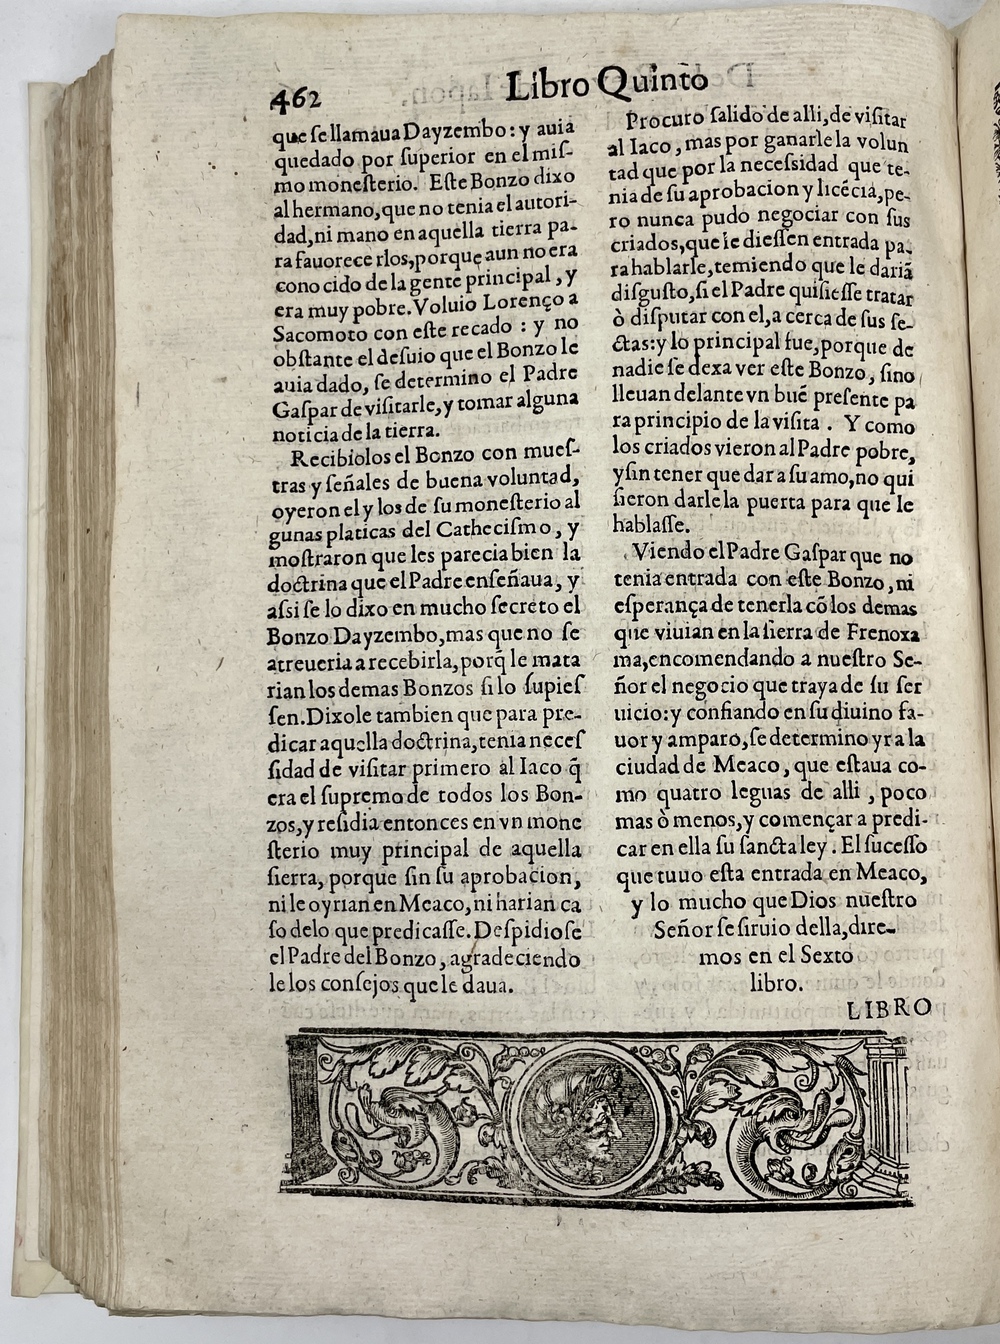 462
Libro Quinto
que ſe llamaua Dayzembo: y auia
quedado por ſuperior en el miſ-
mo moneſterio. Eſte Bonzo dixo
al hermano, que no tenia el autori-
dad, ni mano en aquella tierra pa-
ra fauorecerlos, porque aun no era
conocido de la gente principal, y
era muy pobre. Voluio Lorenço a
Sacomoto con eſte recado: y no
obſtante el deſuio que el Bonzo le
auia dado, ſe determino el Padre
Gaſpar de viſitarle, y tomar alguna
noticia de la tierra.
Recibiolos el Bonzo con mueſ-
tras y ſeñales de buena voluntad,
oyeron el y los de ſu moneſterio al
gunas platicas del Cathecíſmo, y
moſtraron que les parecia bien la
doctrina que el Padre enſeñaua, y
aſsi ſe lo dixo en mucho ſecreto el
Bonzo Dayzembo, mas que no ſe
atreueria a recebirla, porq̃ le mata
rian los demas Bonzos ſi lo ſupieſ
ſen. Dixole tambien que para pre-
dicar aquella doctrina, tenia neceſ
ſidad de viſitar primero al Iaco q̃
era el ſupremo de todos los Bon-
zos, y reſidia entonces en vn mone
ſterio muy principal de aquella
ſierra, porque ſin ſu aprobacion,
ni le oyrian en Meaco, ni harian ca
ſo delo que predicaſſe. Deſpidioſe
el Padre del Bonzo, agradeciendo
le los conſejos que le daua.
Procuro ſalido de alli, de viſitar
al Iaco, mas por ganarle la volun
tad que por la neceſsidad que te-
nia de ſu aprobacion y licẽcia, pe-
ro nunca pudo negociar con ſus
criados, que le dieſſen entrada pa-
ra hablarle, temiendo que le dariã
diſguſto, ſi el Padre quiſieſſe tratar
ò diſputar con el, a cerca de ſus ſe-
ctas: y lo principal fue, porque de
nadie ſe dexa ver eſte Bonzo, ſino
lleuan delante vn buẽ preſente pa
ra principio de la viſita. Y como
los criados vieron al Padre pobre,
y ſin tener que dar a ſu amo, no qui
ſieron darle la puerta para que le
hablaſſe.
Viendo el Padre Gaſpar que no
tenia entrada con eſte Bonzo, ni
eſperança de tenerla cõ los demas
que viuian en la ſierra de Frenoxa
ma, encomendando a nueſtro Se-
ñor el negocio que traya de ſu ſer
uicio: y confiando en ſu diuino fa-
uor y amparo, ſe determino yr a la
ciudad de Meaco, que eſtaua co-
mo quatro leguas de alli, poco
mas ò menos, y començar a predi-
car en ella ſu ſancta ley. El ſuceſſo
que tuuo eſta entrada en Meaco,
y lo mucho que Dios nueſtro
Señor ſe ſiruio della, dire-
mos en el Sexto
libro.
LIBRO